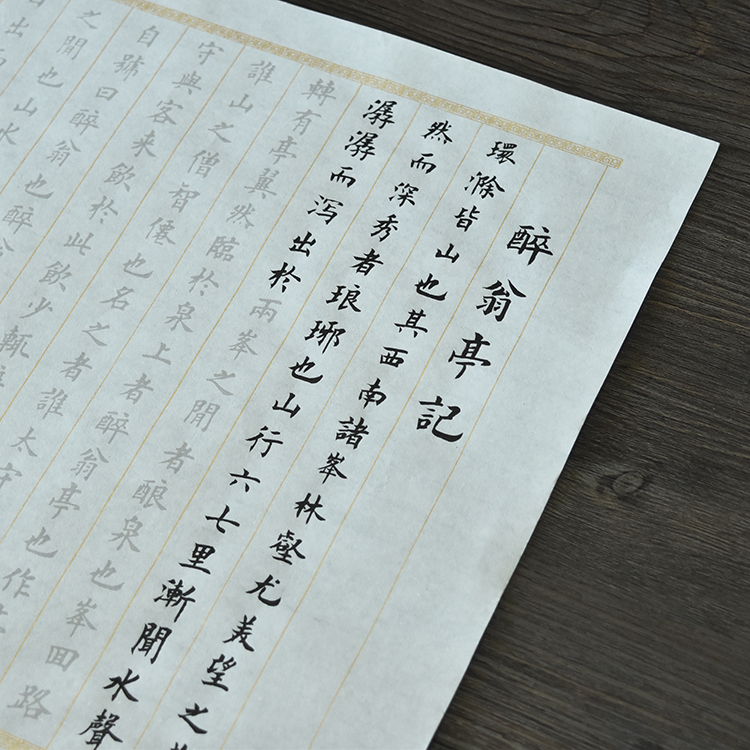 醉翁亭記
環滁皆山也其西南諸峯林壑尤美望之
然而深秀者琅琊也山行六七里漸聞水聲
潺潺而泻出於兩峯之間者酿泉也峯回路
轉有亭翼然臨於泉上者醉翁亭也作
誰山之僧智僊也名之者誰太守
守與客來飲於此飲少輒
自號曰醉翁也醉
之間也山水
出而